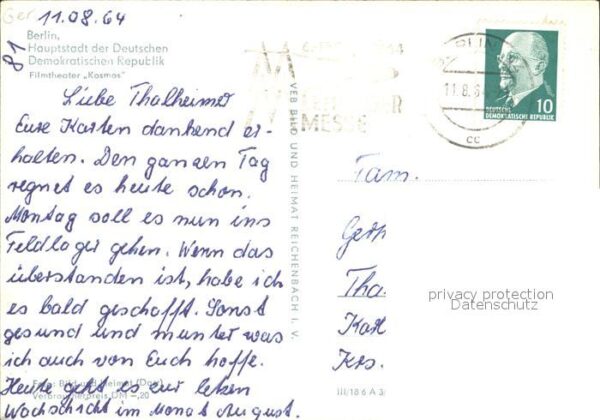 Ger 11.08.64
81
Berlin,
Hauptstadt der Deutschen
Demokratischen Republik
Filmtheater „Kosmos"
Liebe Thalheimer
Eure Karten dankend er-
halten. Den ganzen Tag
regnet es heute schon.
Montag soll es nun ins
Feldlager gehen. Wenn das
überstanden ist, habe ich
es bald geschafft. Sonst
gesund und munter was
ich auch von Euch hoffe.
Heute geht es zur letzen
Wachschicht im Monat August.
Foto: Bild und Heimat
Verbraucherpreis DM -,20
VEB BILD UND HEIMAT REICHENBACH I. V.
MM
MESSE
11.8.64
cc
10
DEUTSCHE
DEMOKRATISCHE REPUBLIK
Fam.
Gerh
Tha
Karl
Krs.
privacy protection
Datenschutz
III/18 6 A 3